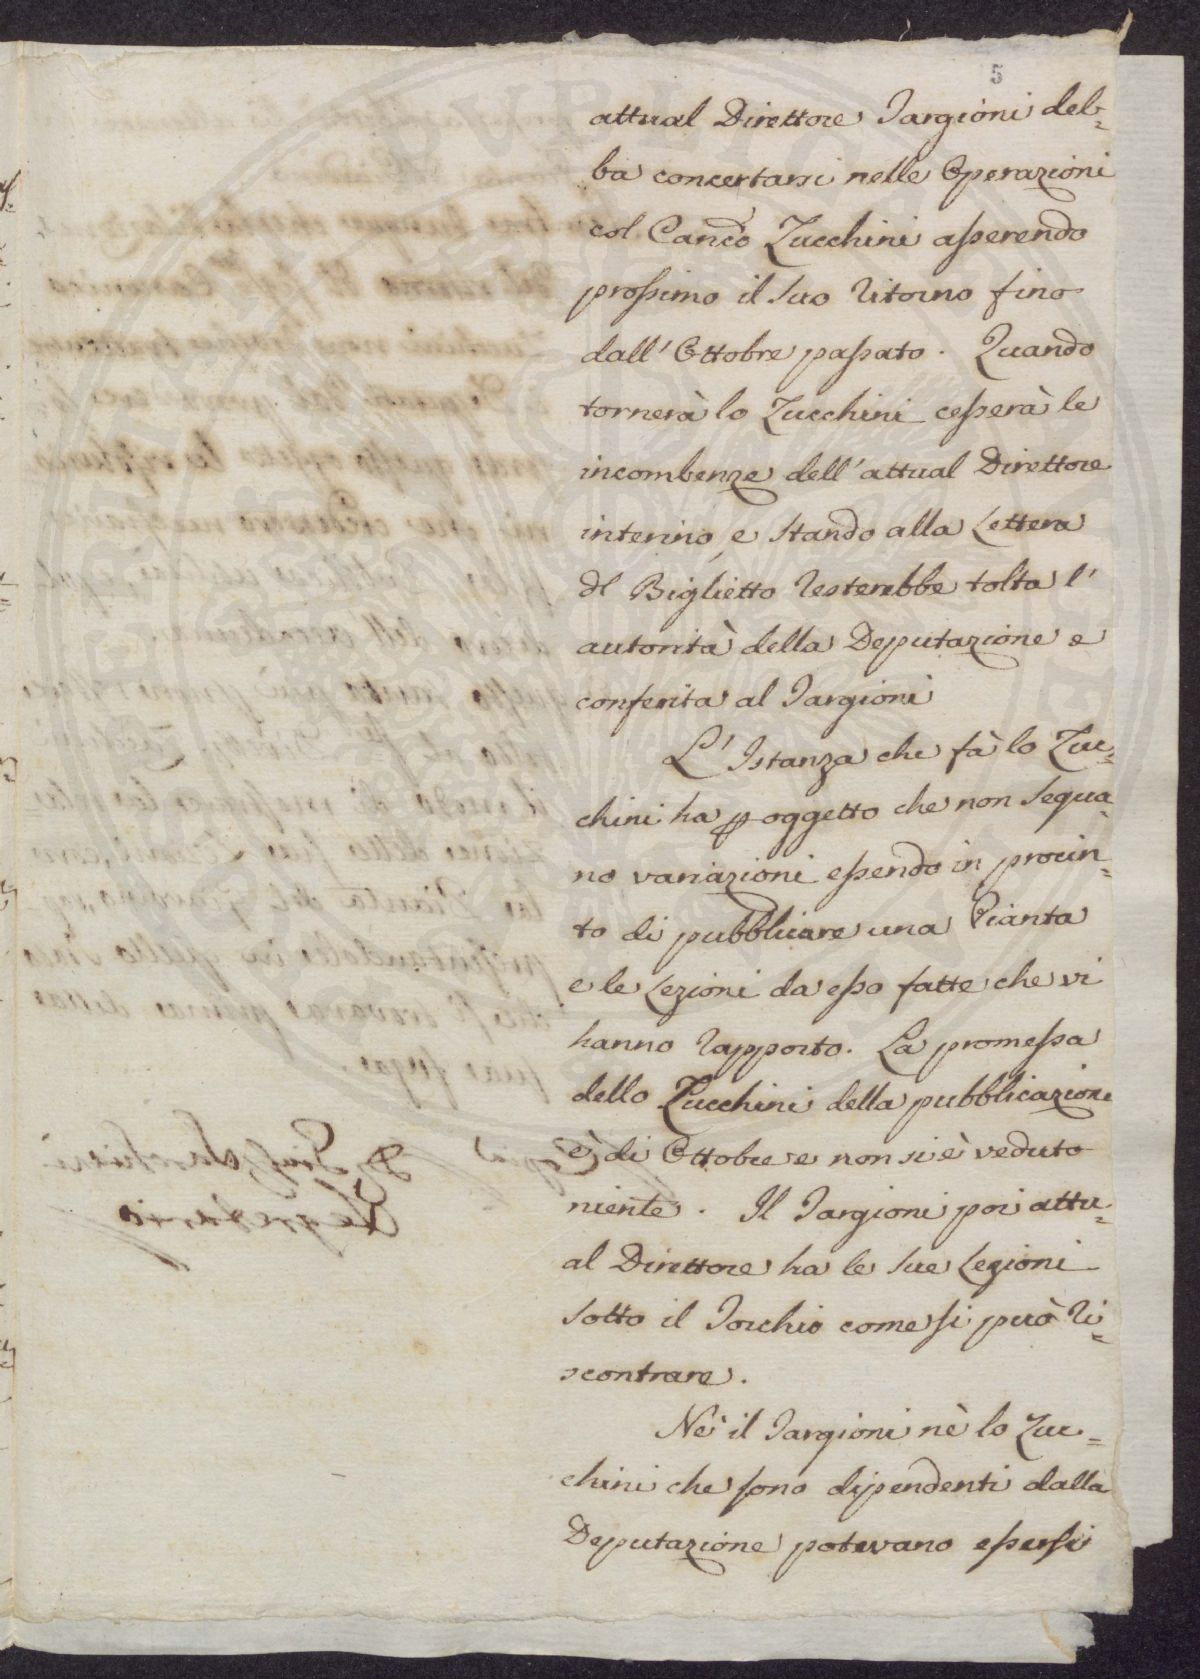 5
attual Direttore Targioni deb=
ba concertarsi nelle Operazioni
col Canco Zucchini asserendo
prossimo il suo ritorno fino
dall' Ottobre passato. Quando
tornerà lo Zucchini cesserà le
incombenze dell' attual Direttore
interino, e stando alla Lettera
del Biglietto resterebbe tolta l'
autorità della Deputazione e
conferita al Targioni
L' Istanza che fà lo Zuc=
chini ha p oggetto che non segua=
no variazioni essendo in procin=
to di pubblicare una Pianta
e le Lezioni da esso fatte che vi
hanno rapporto. La promessa
dello Zucchini della pubblicazione
è di Ottobre e non si è veduto
niente. Il Targioni poi attu=
al Direttore ha le sue Lezioni
sotto il Torchio come si può ri=
scontrare.
Nè il Targioni nè lo Zuc=
chini che sono dipendenti dalla
Deputazione potevano essersi